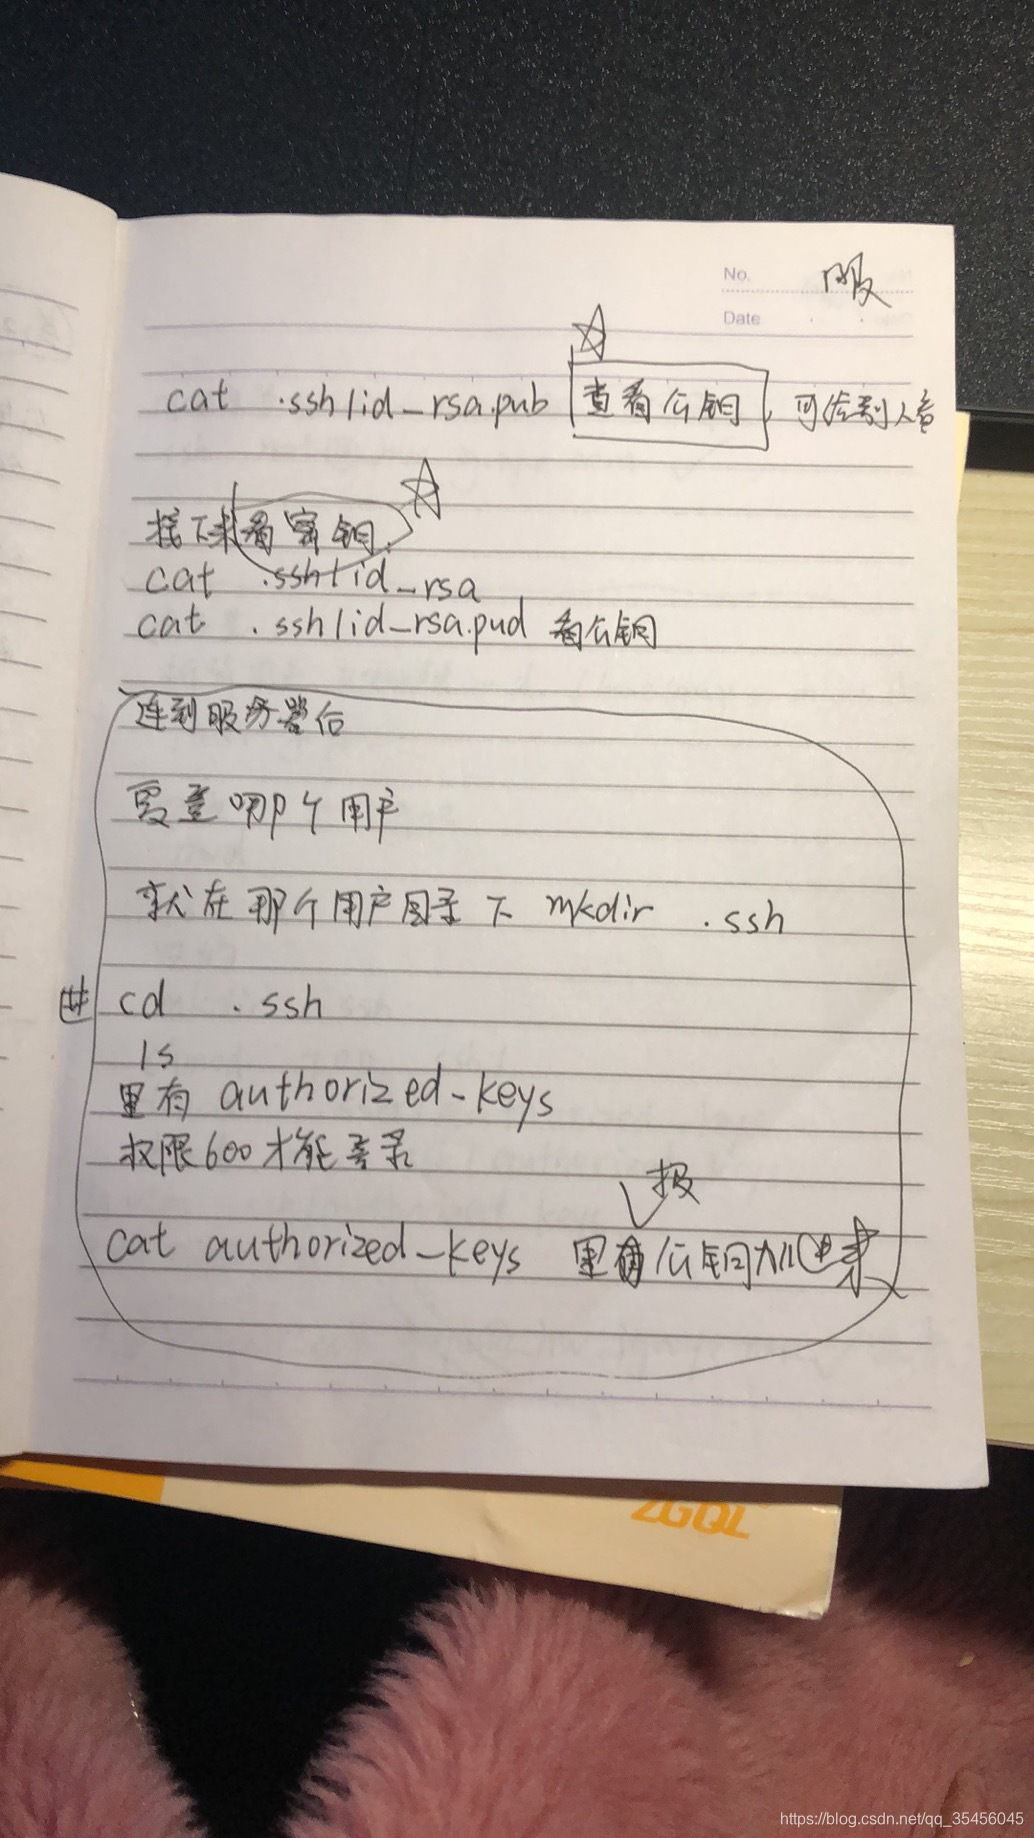 No.
服
Date
cat .ssh/id_rsa.pub 查看公钥,可传到
接下来看密钥
cat .ssh/id_rsa
cat .ssh/id_rsa.pud 看公钥
连到服务器后
要登哪个用户
就在那个用户目录下 mkdir .ssh
cd .ssh
ls
里有 authorized_keys
权限600才能登录
cat authorized_keys 里 公钥加
ZGQL
https://blog.csdn.net/qq_35456045